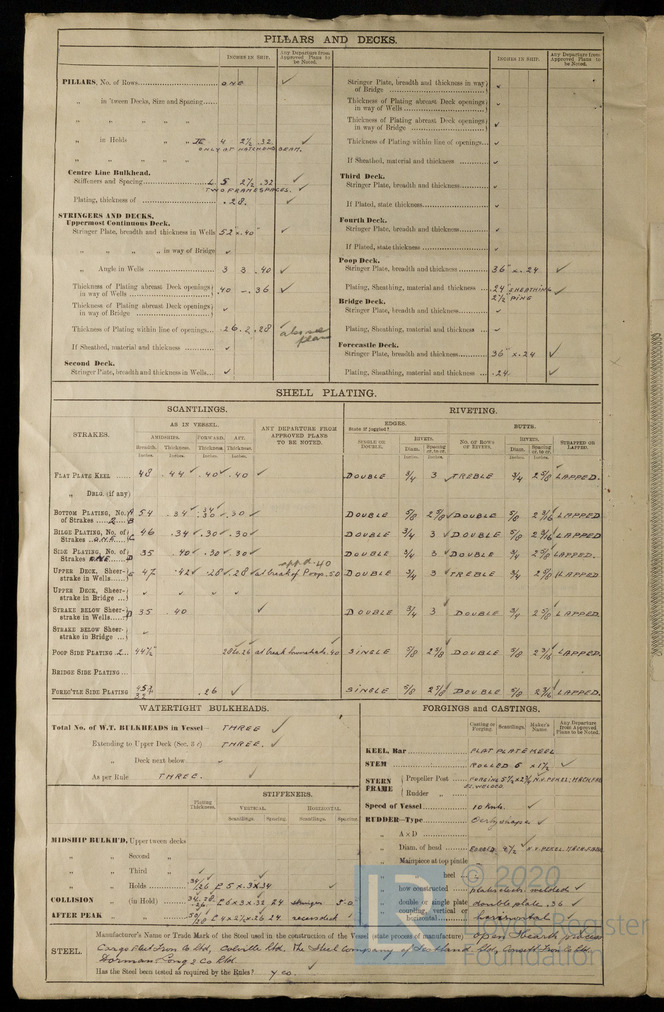 PILLARS AND DECKS.
INCHES IN SHIP.
Any Departure from Approved Plans to be Noted.
PILLARS, No. of Rows ONE ✓
„ in 'tween Decks, Size and Spacing
„ „ „ „
„ in Holds „ „ 4 2½ .32 ✓
ONLY AT HATCH END BEAM.
„ „ „ „
Centre Line Bulkhead.
Stiffeners and Spacing L 5 2½ .32
TWO FRAME SPACES. ✓
Plating, thickness of .28. ✓
STRINGERS AND DECKS.
Uppermost Continuous Deck.
Stringer Plate, breadth and thickness in Wells 52" x .40" ✓
„ „ „ „ in way of Bridge ✓
„ Angle in Wells 3 3 .40 ✓
Thickness of Plating abreast Deck openings in way of Wells .40 - .36 ✓
Thickness of Plating abreast Deck openings in way of Bridge ✓
Thickness of Plating within line of openings .26 .28 ✓ above plan
If Sheathed, material and thickness ✓
Second Deck.
Stringer Plate, breadth and thickness in Wells ✓
INCHES IN SHIP.
Any Departure from Approved Plans to be Noted.
Stringer Plate, breadth and thickness in way of Bridge ✓
Thickness of Plating abreast Deck openings in way of Wells ✓
Thickness of Plating abreast Deck openings in way of Bridge ✓
Thickness of Plating within line of openings ✓
If Sheathed, material and thickness ✓
Third Deck.
Stringer Plate, breadth and thickness ✓
If Plated, state thickness ✓
Fourth Deck.
Stringer Plate, breadth and thickness ✓
If Plated, state thickness ✓
Poop Deck.
Stringer Plate, breadth and thickness 36" x .24 ✓
Plating, Sheathing, material and thickness .24" SHEATHING ✓
2½" PINE
Bridge Deck.
Stringer Plate, breadth and thickness ✓
Plating, Sheathing, material and thickness ✓
Forecastle Deck.
Stringer Plate, breadth and thickness 36" x .24 ✓
Plating, Sheathing, material and thickness .24. ✓
SHELL PLATING.
SCANTLINGS.
RIVETING.
STRAKES.
AS IN VESSEL.
AMIDSHIPS. FORWARD. AFT.
Breadth. Thickness. Thickness. Thickness.
Inches. Inches. Inches. Inches.
ANY DEPARTURE FROM APPROVED PLANS TO BE NOTED.
EDGES.
State if joggled?
SINGLE OR DOUBLE.
RIVETS.
Diam. Spacing cr. to cr.
BUTTS.
NO. OF ROWS OF RIVETS.
RIVETS.
Diam. Spacing cr. to cr.
STRAPPED OR LAPPED.
FLAT PLATE KEEL 48 .44 ✓ .40 ✓ .40 ✓ DOUBLE 3/4 3 ✓ TREBLE 3/4 2 5/8 LAPPED.
„ DBLG. (if any)
BOTTOM PLATING, No. of Strakes 2 A B 54 .34 ✓ .34 .30 ✓ .30 ✓ DOUBLE 5/8 2 5/8 ✓ DOUBLE 5/8 2 3/16 LAPPED
BILGE PLATING, No. of Strakes ONE C 46 .34 ✓ .30 ✓ .30 DOUBLE 3/4 3 ✓ DOUBLE 5/8 2 3/16 LAPPED
SIDE PLATING, No. of Strakes ONE D 35 .40 ✓ .30 ✓ .30 DOUBLE 3/4 3 ✓ DOUBLE 3/4 2 5/8 LAPPED.
appd .40
UPPER DECK, Sheerstrake in Wells E 47 .42 ✓ .28 ✓ .28 ✓ at break of Poop .50 DOUBLE 3/4 3 ✓ TREBLE 3/4 2 5/8 LAPPED
UPPER DECK, Sheerstrake in Bridge ✓ ✓ ✓ ✓
STRAKE BELOW Sheerstrake in Wells D 35 .40 ✓ DOUBLE 3/4 3 DOUBLE 3/4 2 5/8 LAPPED.
STRAKE BELOW Sheerstrake in Bridge ✓
POOP SIDE PLATING 44½" .28 & .26 at break .40 SINGLE 5/8 2 5/8 DOUBLE 5/8 2 3/16 LAPPED.
BRIDGE SIDE PLATING
FORECTLE SIDE PLATING .26 ✓ SINGLE 5/8 2 5/8 DOUBLE 5/8 2 3/16 LAPPED.
WATERTIGHT BULKHEADS.
Total No. of W.T. BULKHEADS in Vessel THREE ✓
Extending to Upper Deck (Sec. 3 f) THREE. ✓
„ Deck next below ✓
As per Rule THREE. ✓
STIFFENERS.
Plating Thickness.
VERTICAL. HORIZONTAL.
Scantlings. Spacing. Scantlings. Spacing.
MIDSHIP BULKH'D, Upper tween decks
„ „ Second „
„ „ Third „
„ „ Holds .34/.26 L 5 x 3 x 34
COLLISION „ (in Hold) L 6 x 3 x 32 24 stringer 5-0
AFTER PEAK „ „ L 4 x 2½ x 26 24 ✓
FORGINGS and CASTINGS.
Casting or Forging. Scantlings. Maker's Name Any Departure from Approved Plans to be Noted.
KEEL, Bar FLAT PLATE KEEL
STEM ROLLED 6 x 1½ ✓
STERN FRAME Propeller Post FORGING 5¾ x 2¾
EL. WELDED
Rudder „
Speed of Vessel 10 knots. ✓
RUDDER—Type ✓
„ A x D
„ Diam. of head ROLLED 4½ ✓
„ Mainpiece at top pintle
„ „ heel ✓
„ how constructed welded ✓
„ double or single plate double plate .36 ✓
„ coupling, vertical or horizontal horizontal
STEEL.
Manufacturer's Name or Trade Mark of the Steel used in the construction of the Vessel (state process of manufacture) open Hearth process
Cargo Fleet Iron Co Ltd, Colville Ltd. The Steel Company of Scotland Ltd, Consett Iron Co Ltd,
Dorman Long & Co Ltd.
Has the Steel been tested as required by the Rules? yes.
LR
© 2020
Lloyd's Register
Foundation